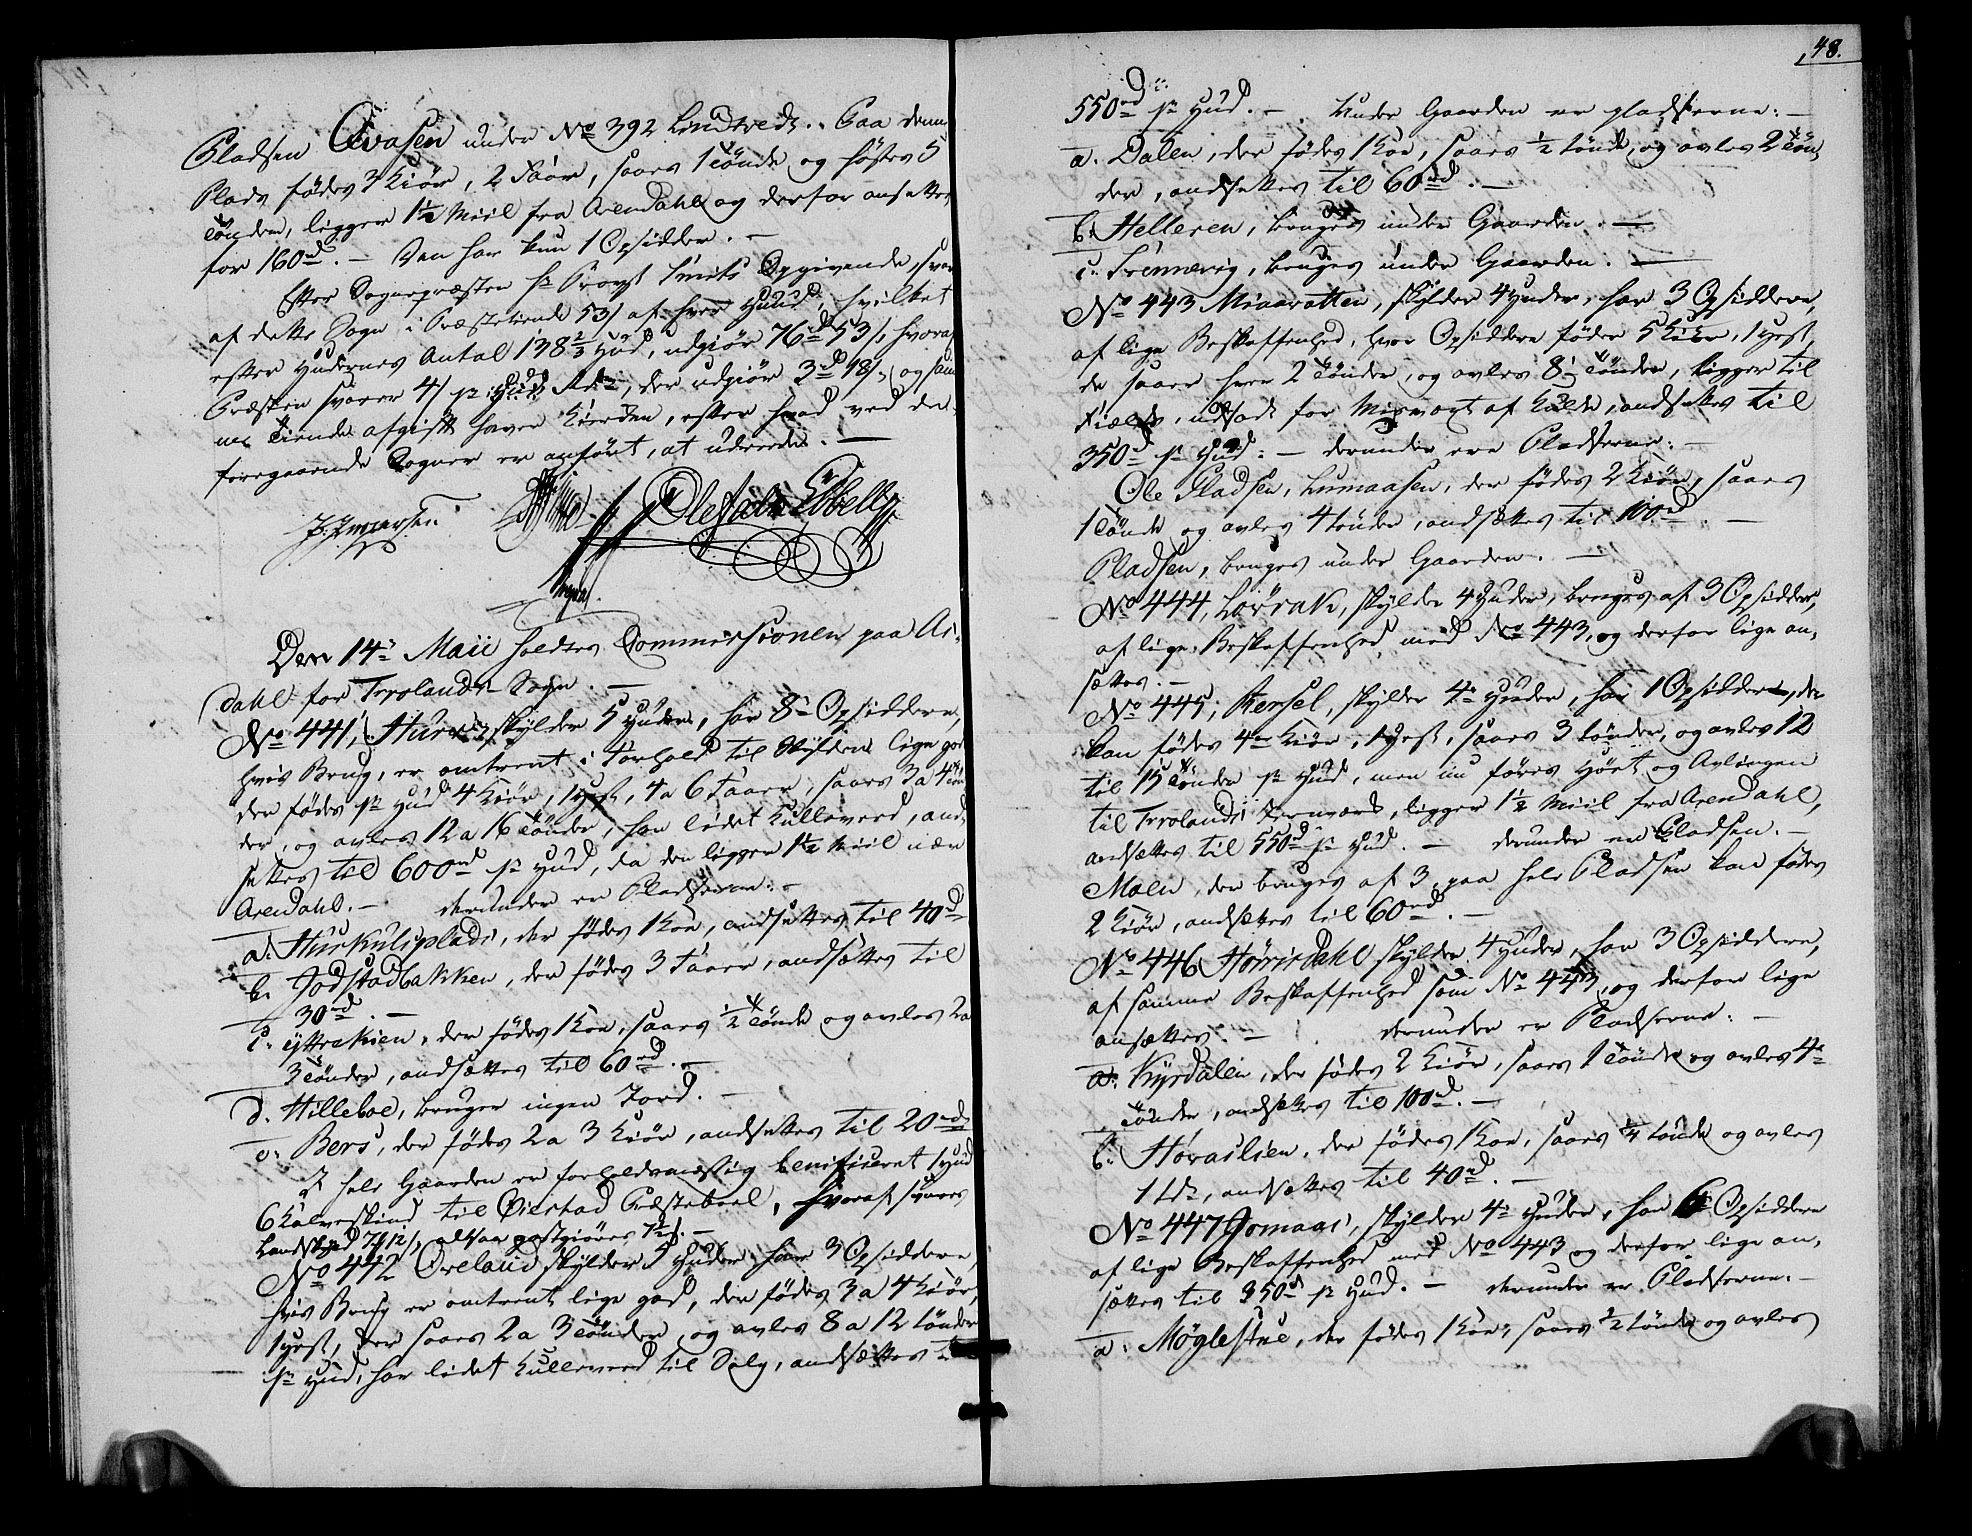 Pladsen Aasen under No 392 Lindtvedt. Paa denne
Plads födes 3 Kiör, 2 Faar, saaes 1 Tönde og höstes 5
Tönder, ligger 1½ Miil fra Arendahl og derfor ansettes
for 160 rd. — Den har kun 1 Opsidder. —
Efter Sognepræsten Hr Provst Smits Opgivende, svares
af dette Sogn i Præstetiende 53 s af hver Huud, hvilket
efter Hudernes Antal 138⅔ Hud, udgiör 76 rd 53 s, hvoraf
Præsten svarer 4 s pr rd, der udgiör 3 rd 18 s, og sam¬
me Tiende afgift haver Kirken, efter hvad ved de
foregaaende Sogner er anfört, at udrede. —
J. Jwersen
Ole Ebbell
Den 14de Maii holdtes Commissionen paa As¬
dahl for Froelands Sogn. —
No 441, Hurv, skylder 5 Huder, har 8 Opsiddere,
hvis Brug, er omtrent i Forhold til Skylden lige god
der födes pr Hud 4 Kiör, 1 Hest, 4 a 6 Faar, saaes 3 a 4 Tön
der, og avles 12 a 16 Tönder, har lidet Kulleved, and
settes til 600 rd pr Hud, da den ligger 1½ Miil nær
Arendahl. — derunder er Pladserne: —
a. Hurkulsplads, der födes 1 Koe, andsettes til 40 rd
b. Jodstadbakken, der födes 3 Faar, andsættes til
30 rd. —
c. Yttrekien, der födes 1 Koe, saaes ½ Tönde og avles 2 a
3 Tönder, andsættes til 60 rd. —
d. Hilleboe, bruger ingen Jord. —
e. Bers, der födes 2 a 3 Kiör, andsettes til 20 rd
I hele Gaarden er forholdsmæssig benificeret 1 Hud
6 Kalveskind til Öiestad Præsteboel, hvoraf svares
Landskyld 12 s, altsaa godtgiöres 7½ s. —
No 442 Öveland skylder 5 Huder har 3 Opsiddere,
hvis Brug er omtrent lige god, der födes 3 a 4 Kiör,
1 Hest, der saaes 2 a 3 Tönder, og avles 8 a 12 Tönder
pr Hud, har lidet Kulleved til Salg, andsættes til
48.
550 rd pr Hud. — Under Gaarden er Pladserne: —
a. Dalen, der födes 1 Koe, saaes ½ Tönde, og avles 2 Tön¬
der, andsettes til 60 rd. —
b. Helleren, bruges under Gaarden. —
c. Trennevig, bruges under Gaarden. —
No 443 Miaavatten, skylder 4 Huder, har 3 Opsiddere,
af lige Beskaffenhed, hver Opsidder föder 5 Kiör, 1 Hest,
de saaer hver 2 Tönder, og avles 8 Tönder, ligger til
Fields, udsadt for Misvext af Kulde, andsettes til
350 rd pr Hud: — derunder ere Pladserne: —
Ole Pladsen, Lumaasen, der födes 2 Kiör, saaes
1 Tönde og avles 4 Tönder, andsættes til 100 rd. —
Pladsen, bruges under Gaarden. —
No 444, Lövrak, skylder 4 Huder, bruges af 3 Opsiddere,
af lige Beskaffenhed med No 443, og derfor lige an¬
sættes. —
No 445, Rensel, skylder 4 Huder, har 1 Opsidder, der
kan födes 4 Kiör, 1 Hest, saaes 3 Tönder, og avles 12
til 15 Tönder pr Hud, men nu föres Höet og Avlingen
til Froelands Jernværk, ligger 1½ Miil fra Arendahl,
andsættes til 550 rd pr Hud. — derunder er Pladsen. —
Moen, der bruges af 3, paa hele Pladsen kan födes
2 Kiör, andsættes til 60 rd. —
No 446 Hövrisdahl skylder 4 Huder, har 3 Opsiddere,
af samme Beskaffenhed som No 443, og derfor lige
ansættes. — derunder er Pladserne: —
a. Kyrdalen, der födes 2 Kiör, saaes 1 Tönde og avles 4
Tönder, andsættes til 100 rd. —
b. Höraslien, der födes 1 Koe, saaes ¼ Tönde og avles
1 Tde, andsættes til 40 rd. —
No 447 Jomaas, skylder 4 Huder, har 6 Opsiddere
af lige Beskaffenhed med No 443 og derfor lige an¬
sættes til 350 rd pr Hud. — derunder er Pladserne: —
a. Möglestue, der födes 1 Koe, saaes ½ Tönde og avles